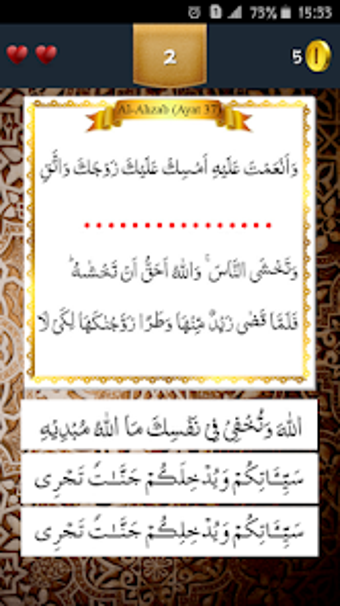 73% 15:33
2
5
Al-Ahzab (Ayat 37)
وَأَنْعَمْتَ عَلَيْهِ أَمْسِكْ عَلَيْكَ زَوْجَكَ وَاتَّقِ
................
وَتَخْشَى النَّاسَ ۚ وَاللّٰهُ أَحَقُّ أَنْ تَخْشٰىهُ ۗ
فَلَمَّا قَضٰى زَيْدٌ مِّنْهَا وَطَرًا زَوَّجْنٰكَهَا لِكَيْ لَا
اللّٰهَ وَتُخْفِيْ فِيْ نَفْسِكَ مَا اللّٰهُ مُبْدِيْهِ
سَيِّـَٔاتِكُمْ وَيُدْخِلَكُمْ جَنّٰتٍ تَجْرِى
سَيِّـَٔاتِكُمْ وَيُدْخِلْكُمْ جَنّٰتٍ تَجْرِى